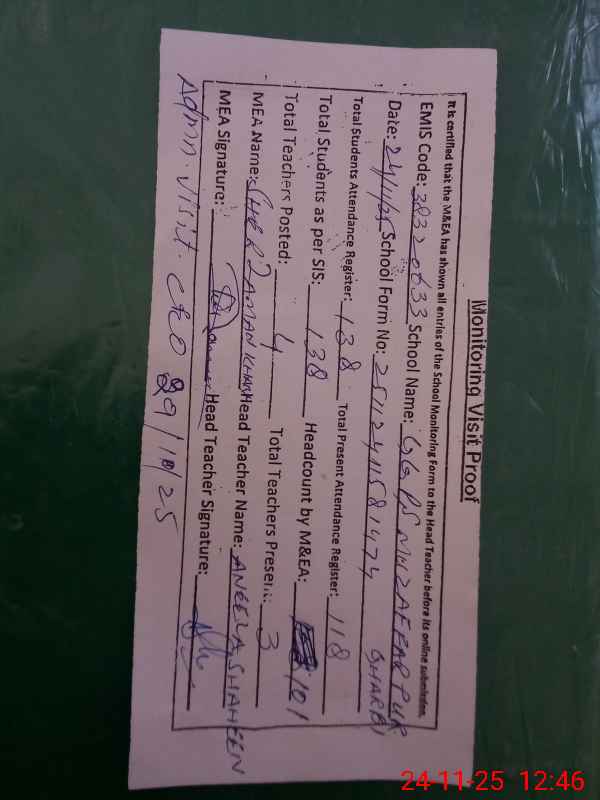 Monitoring Visit Proof
It is certified that the M&EA has shown all entries of the School Monitoring Form to the Head Teacher before its online submission.
EMIS Code: 38320633 School Name: GGPS MUZAFFARPUR GHARBI
Date: 24/11/25 School Form No: 251124111581474
Total Students Attendance Register: 138 Total Present Attendance Register: 118
Total Students as per SIS: 138 Headcount by M&EA: 101
Total Teachers Posted: 4 Total Teachers Present: 3
MEA Name: SHER ZAMAN KHAN Head Teacher Name: ANEELA SHAHEEN
MEA Signature: Head Teacher Signature:
Admn. Visit. CEO 29/10/25
24-11-25 12:46